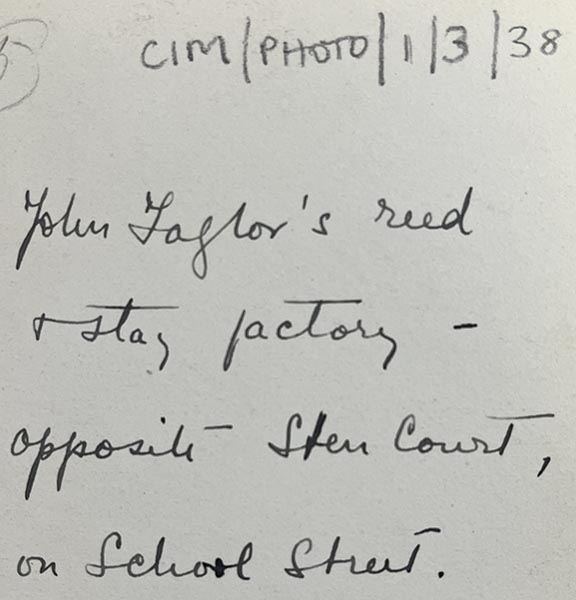 CIM/PHOTO/1/3/38
John Taylor's reed
+ stay factory -
opposite Court,
on School Street.